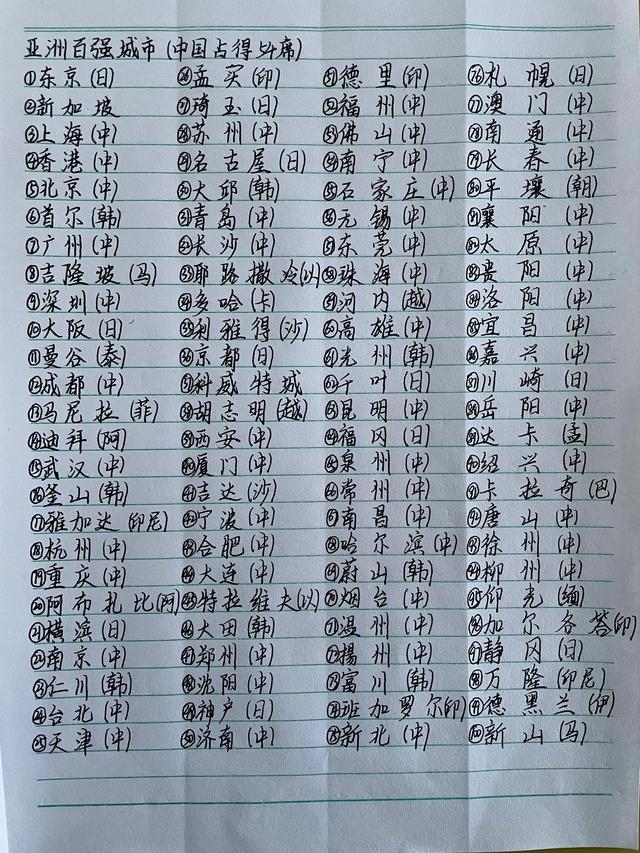 亚洲百强城市 (中国占得54席)
①东京(日)
②新加坡
③上海(中)
④香港(中)
⑤北京(中)
⑥首尔(韩)
⑦广州(中)
⑧吉隆坡(马)
⑨深圳(中)
⑩大阪(日)
⑪曼谷(泰)
⑫成都(中)
⑬马尼拉(菲)
⑭迪拜(阿)
⑮武汉(中)
⑯釜山(韩)
⑰雅加达(印尼)
⑱杭州(中)
⑲重庆(中)
⑳阿布扎比(阿)
㉑横滨(日)
㉒南京(中)
㉓仁川(韩)
㉔台北(中)
㉕天津(中)
㉖孟买(印)
㉗琦玉(日)
㉘苏州(中)
㉙名古屋(日)
㉚大邱(韩)
㉛青岛(中)
㉜长沙(中)
㉝耶路撒冷(以)
㉞多哈(卡)
㉟利雅得(沙)
㊱京都(日)
㊲科威特城
㊳胡志明(越)
㊴西安(中)
㊵厦门(中)
㊶吉达(沙)
㊷宁波(中)
㊸合肥(中)
㊹大连(中)
㊺特拉维夫(以)
㊻大田(韩)
㊼郑州(中)
㊽沈阳(中)
㊾神户(日)
㊿济南(中)
(51)德里(印)
(52)福州(中)
(53)佛山(中)
(54)南宁(中)
(55)石家庄(中)
(56)无锡(中)
(57)东莞(中)
(58)珠海(中)
(59)河内(越)
(60)高雄(中)
(61)光州(韩)
(62)千叶(日)
(63)昆明(中)
(64)福冈(日)
(65)泉州(中)
(66)常州(中)
(67)南昌(中)
(68)哈尔滨(中)
(69)蔚山(韩)
(70)烟台(中)
(71)温州(中)
(72)楊州(中)
(73)富川(韩)
(74)班加罗尔(印)
(75)新北(中)
(76)札幌(日)
(77)澳门(中)
(78)南通(中)
(79)长春(中)
(80)平壤(朝)
(81)襄阳(中)
(82)太原(中)
(83)贵阳(中)
(84)洛阳(中)
(85)宜昌(中)
(86)嘉兴(中)
(87)川崎(日)
(88)岳阳(中)
(89)达卡(孟)
(90)绍兴(中)
(91)卡拉奇(巴)
(92)唐山(中)
(93)徐州(中)
(94)柳州(中)
(95)仰光(缅)
(96)加尔各答(印)
(97)静冈(日)
(98)万隆(印尼)
(99)德黑兰(伊)
(100)新山(马)